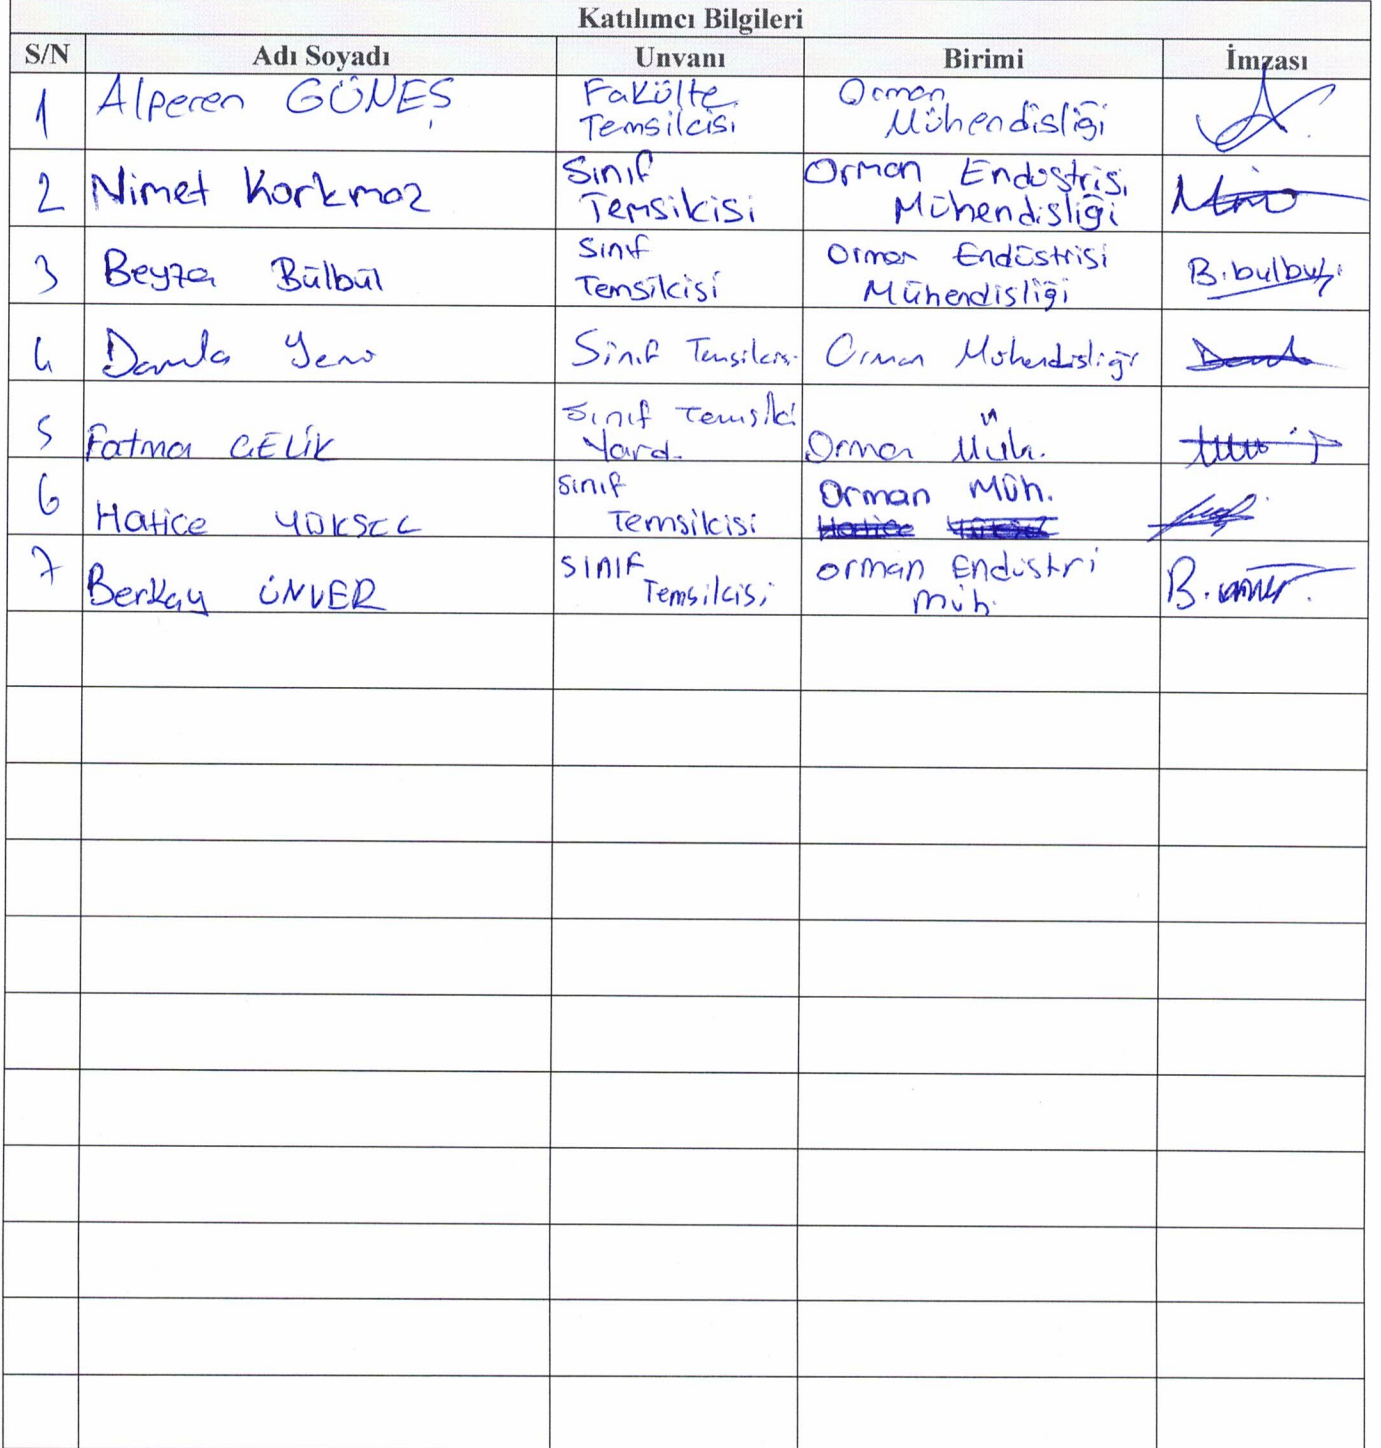 Katılımcı Bilgileri
S/N Adı Soyadı Unvanı Birimi İmzası
1 Alperen GÜNEŞ Fakülte Temsilcisi Orman Mühendisliği
2 Nimet Korkmaz Sınıf Temsilcisi Orman Endüstrisi Mühendisliği
3 Beyza Bülbül Sınıf Temsilcisi Orman Endüstrisi Mühendisliği B.bulbul
4 Damla Sınıf Temsilcisi Orman Mühendisliği
5 Fatma ÇELİK Sınıf Temsilci Yard. Orman Müh.
6 Hatice YÜKSEL Sınıf Temsilcisi Orman Müh.
7 Berkay ÜNVER SINIF Temsilcisi orman Endüstri Müh.